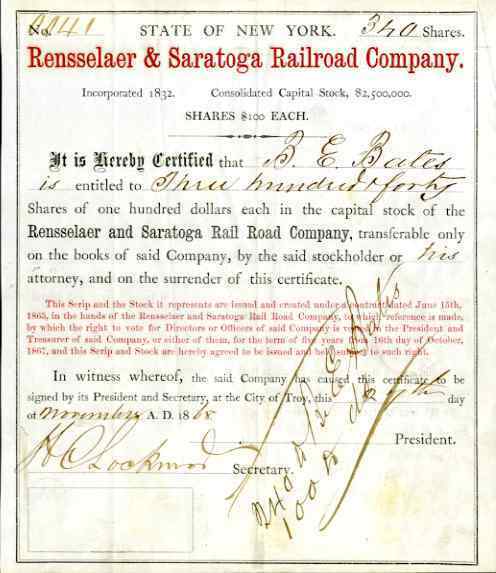 No. 1141 STATE OF NEW YORK. 340 Shares.
Rensselaer & Saratoga Railroad Company.
Incorporated 1832. Consolidated Capital Stock, $2,500,000.
SHARES $100 EACH.
It is Hereby Certified that B. E. Bates
is entitled to Three hundred & forty
Shares of one hundred dollars each in the capital stock of the
Rensselaer and Saratoga Rail Road Company, transferable only
on the books of said Company, by the said stockholder or his
attorney, and on the surrender of this certificate.
This Scrip and the Stock it represents are issued and created under a contract dated June 15th,
1865, in the hands of the Rensselaer and Saratoga Rail Road Company, to which reference is made,
by which the right to vote for Directors or Officers of said Company is vested in the President and
Treasurer of said Company, or either of them, for the term of five years from 16th day of October,
1867, and this Scrip and Stock are hereby agreed to be issued and held subject to such right.
In witness whereof, the said Company has caused this certificate to be
signed by its President and Secretary, at the City of Troy, this day
of November A. D. 1868
President.
H C Lockwood Secretary.
240 to B E Bates
100 to